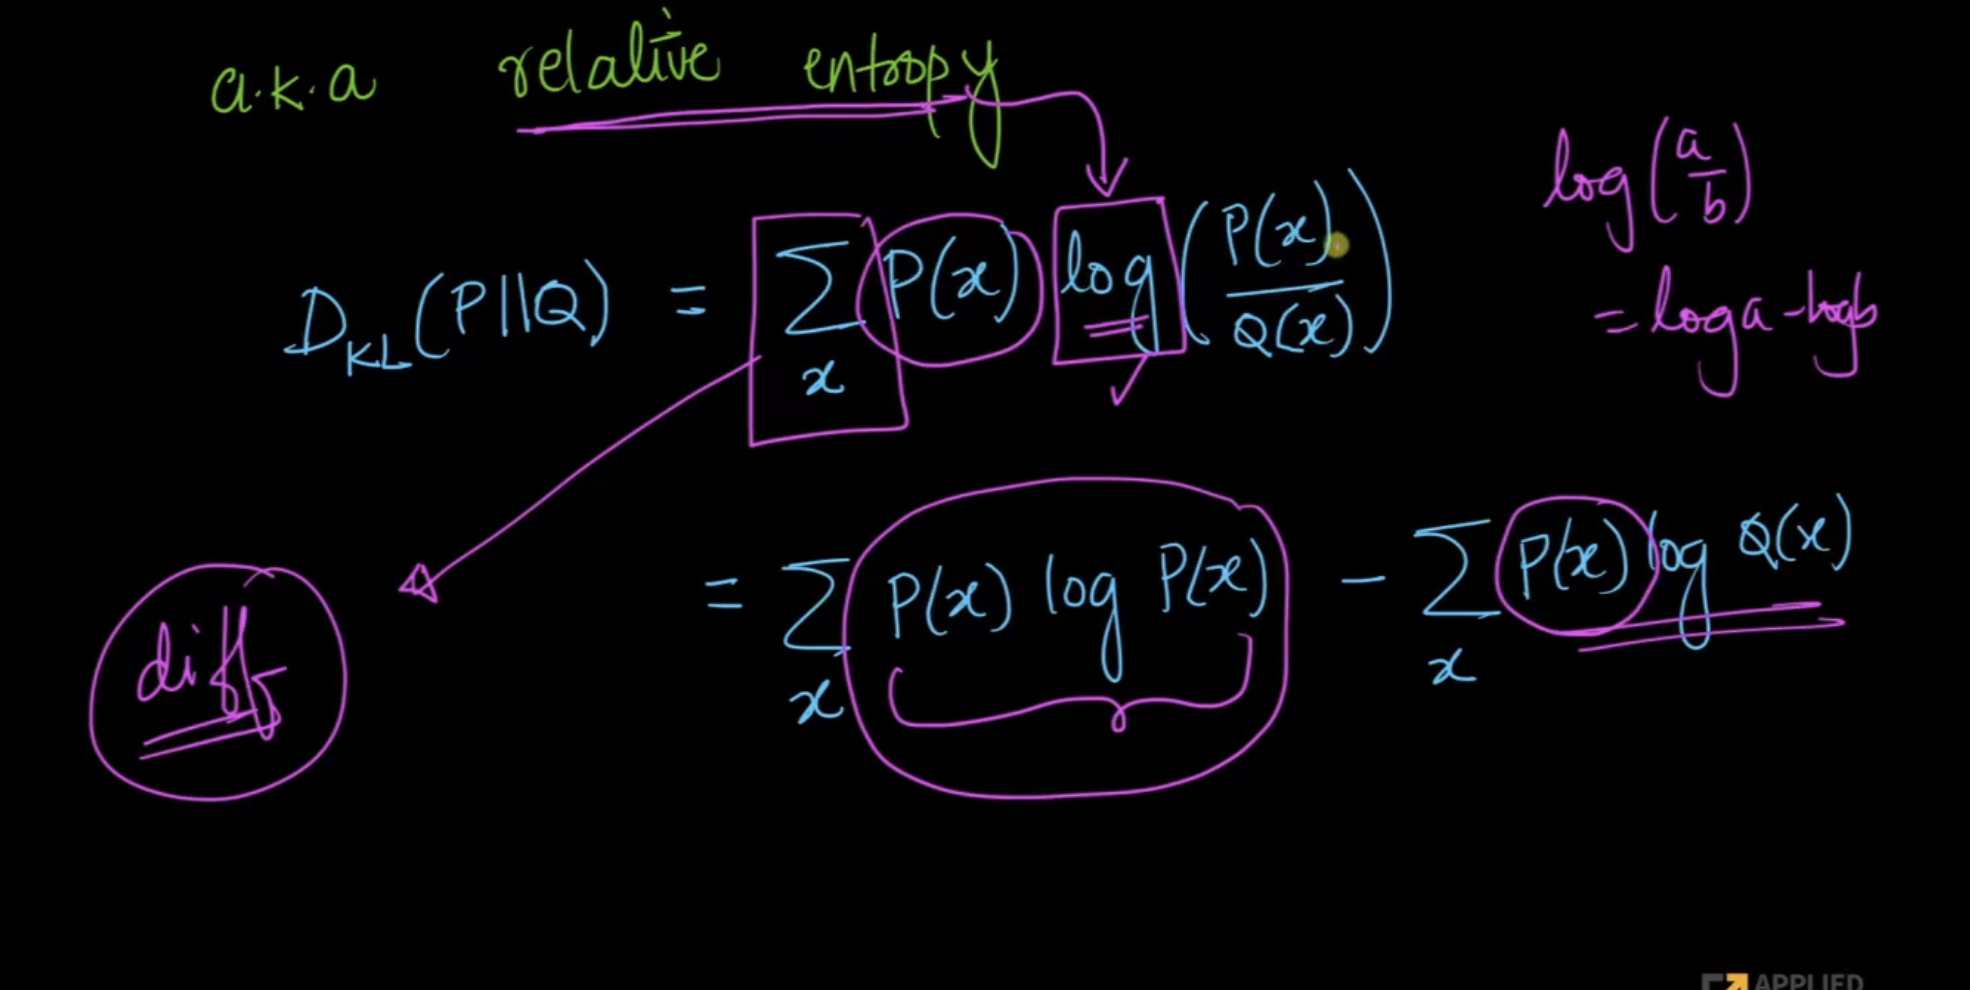 a.k.a relative entropy
D_KL(P||Q) = ∑_x P(x) log(P(x)/Q(x))
log(a/b)
= log a - log b
= ∑_x P(x) log P(x) - ∑_x P(x) log Q(x)
diff
APPLIED